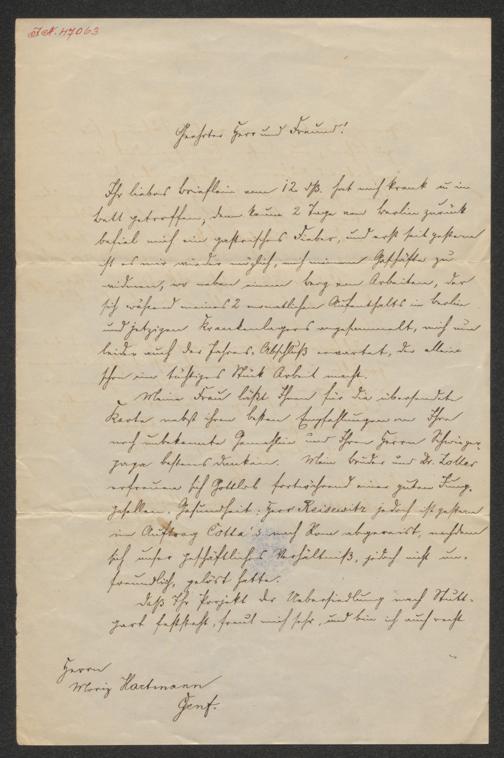 I.N. 47063
Geehrter Herr und Freund!
Ihr liebes Brieflein vom 12 dß. hat mich krank u. im
Bett getroffen, denn kaum 2 Tage von Berlin zurück
befiel mich ein gastrisches Fieber, und erst seit gestern
ist es mir wieder möglich, mich meinem Geschäfte zu
widmen, wo neben einem Berg von Arbeiten, der
sich während meines 2 monatlichen Aufenthalts in Berlin
und jetzigen Krankenlagers angesammelt, mich nun
leider auch der Jahres-Abschluß erwartet, der allein
schon ein tüchtiges Stük Arbeit macht.
Meine Frau läßt Ihnen für die übersendte
Karte nebst ihren besten Empfehlungen an Ihre
noch unbekannte Gemahlin und Ihren Herrn Schwieger-
papa bestens danken. Mein Bruder und Dr. Zoller
erfreuen sich Gottlob fortwährend einer guten Jung-
gesellen-Gesundheit; Herr Reisewitz jedoch ist gestern
im Auftrag Cotta's nach Rom abgereist, nachdem
sich unser geschäftliches Verhältniß, jedoch nicht un-
freundlich, gelöst hatte.
Daß Ihr Projekt der Uebersiedlung nach Stutt-
gart feststeht, freut mich sehr, und bin ich auch recht
Herrn
Moriz Hartmann
Genf.